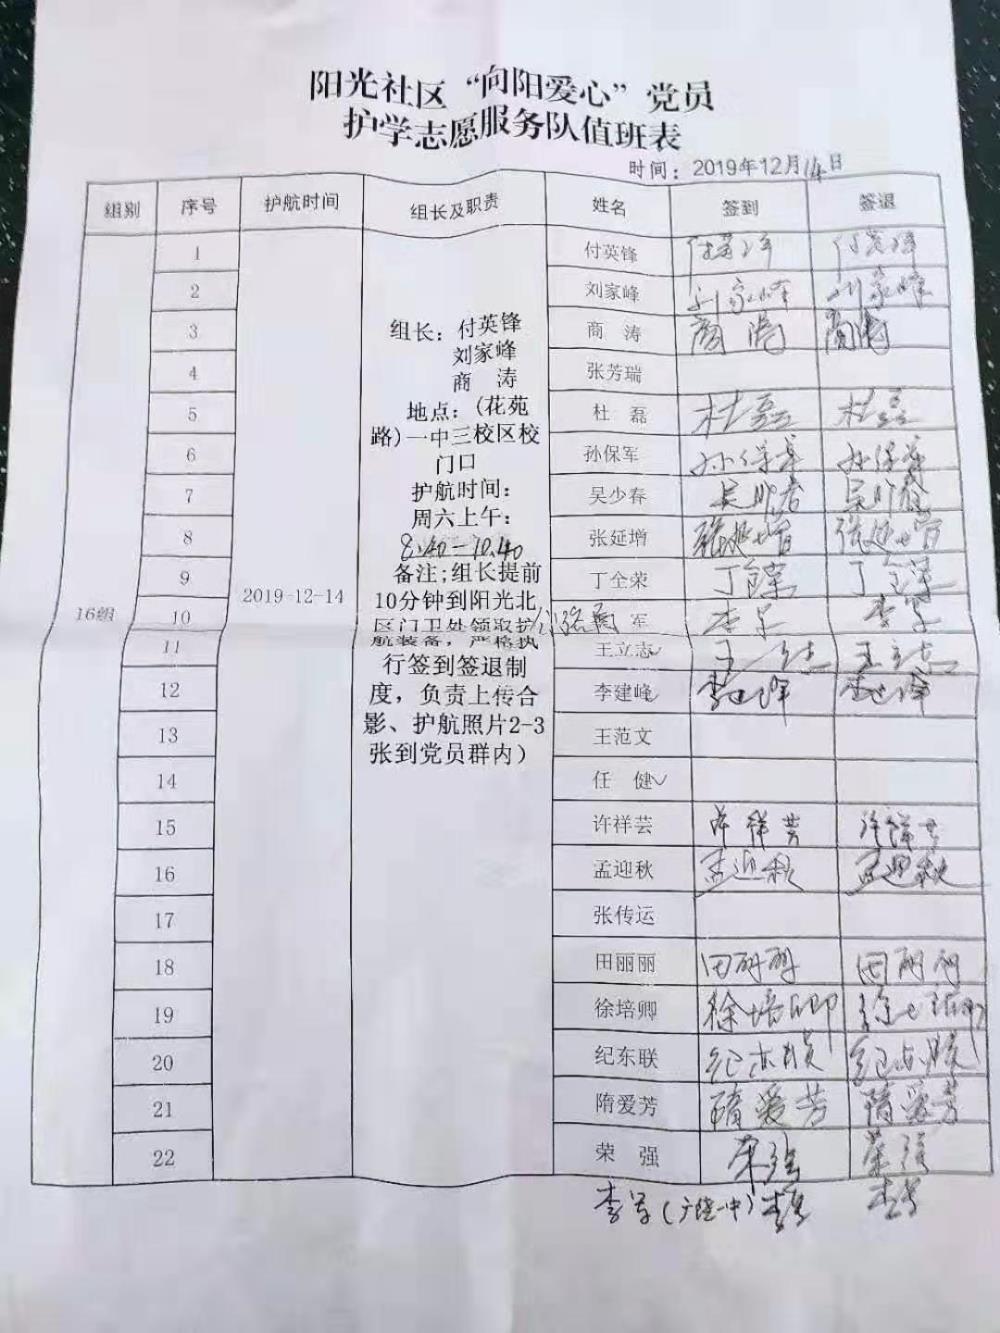 阳光社区“向阳爱心”党员
护学志愿服务队值班表
时间：2019年12月14日
组别 序号 护航时间 组长及职责 姓名 签到 签退
16组
2019-12-14
组长：付英锋
刘家峰
商 涛
地点：(花苑
路)一中三校区校
门口
护航时间：
周六上午：
8:40-10:40
备注;组长提前
10分钟到阳光北
区门卫处领取护
航装备，严格执
行签到签退制
度，负责上传合
影、护航照片2-3
张到党员群内）
1 付英锋 付英锋 付英锋
2 刘家峰 刘家峰 刘家峰
3 商 涛 商涛 商涛
4 张芳瑞
5 杜 磊 杜磊 杜磊
6 孙保军 孙保军 孙保军
7 吴少春 吴少春 吴少春
8 张延增 张延增 张延增
9 丁全荣 丁全荣 丁全荣
10 军 李军 李军
11 王立志✓ 王立志 王立志
12 李建峰✓ 李建峰 李建峰
13 王范文
14 任 健✓
15 许祥芸 许祥芸 许祥芸
16 孟迎秋 孟迎秋 孟迎秋
17 张传运
18 田丽丽 田丽丽 田丽丽
19 徐培卿 徐培卿 徐培卿
20 纪东联 纪东联 纪东联
21 隋爱芳 隋爱芳 隋爱芳
22 荣 强 荣强 荣强
李军(广饶一中) 李军 李军